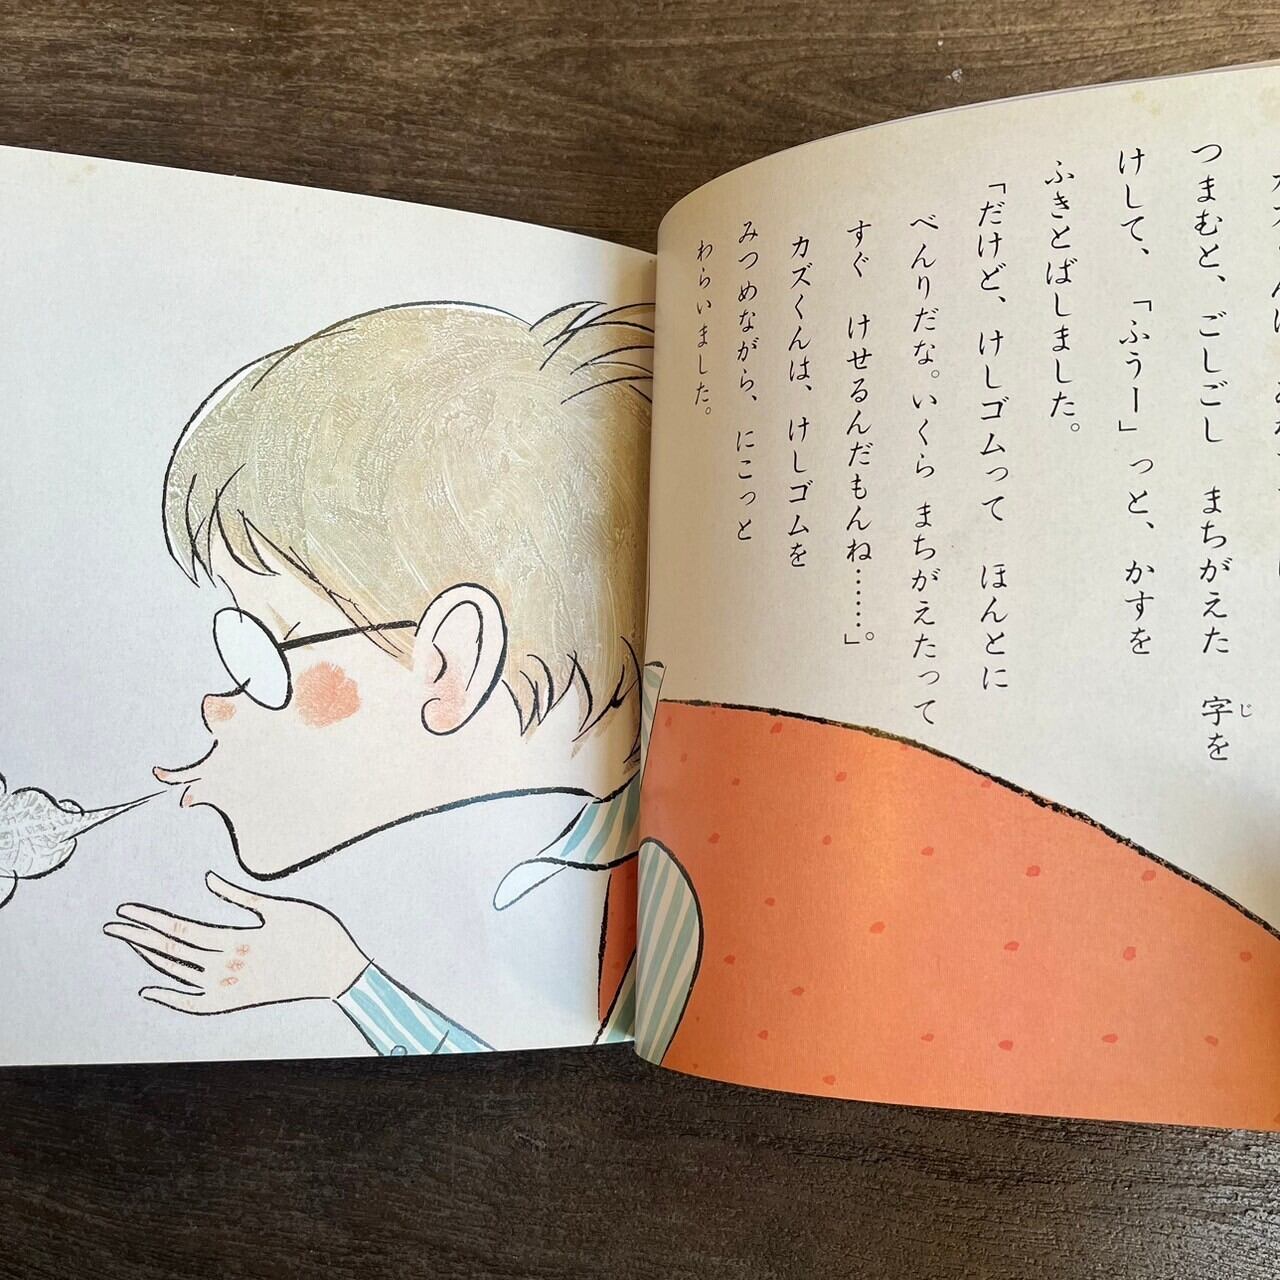 つまむと、ごしごし まちがえた 字を
じ
けして、「ふうー」っと、かすを
ふきとばしました。
「だけど、けしゴムって ほんとに
べんりだな。いくら まちがえたって
すぐ けせるんだもんね……」。
カズくんは、けしゴムを
みつめながら、にこっと
わらいました。